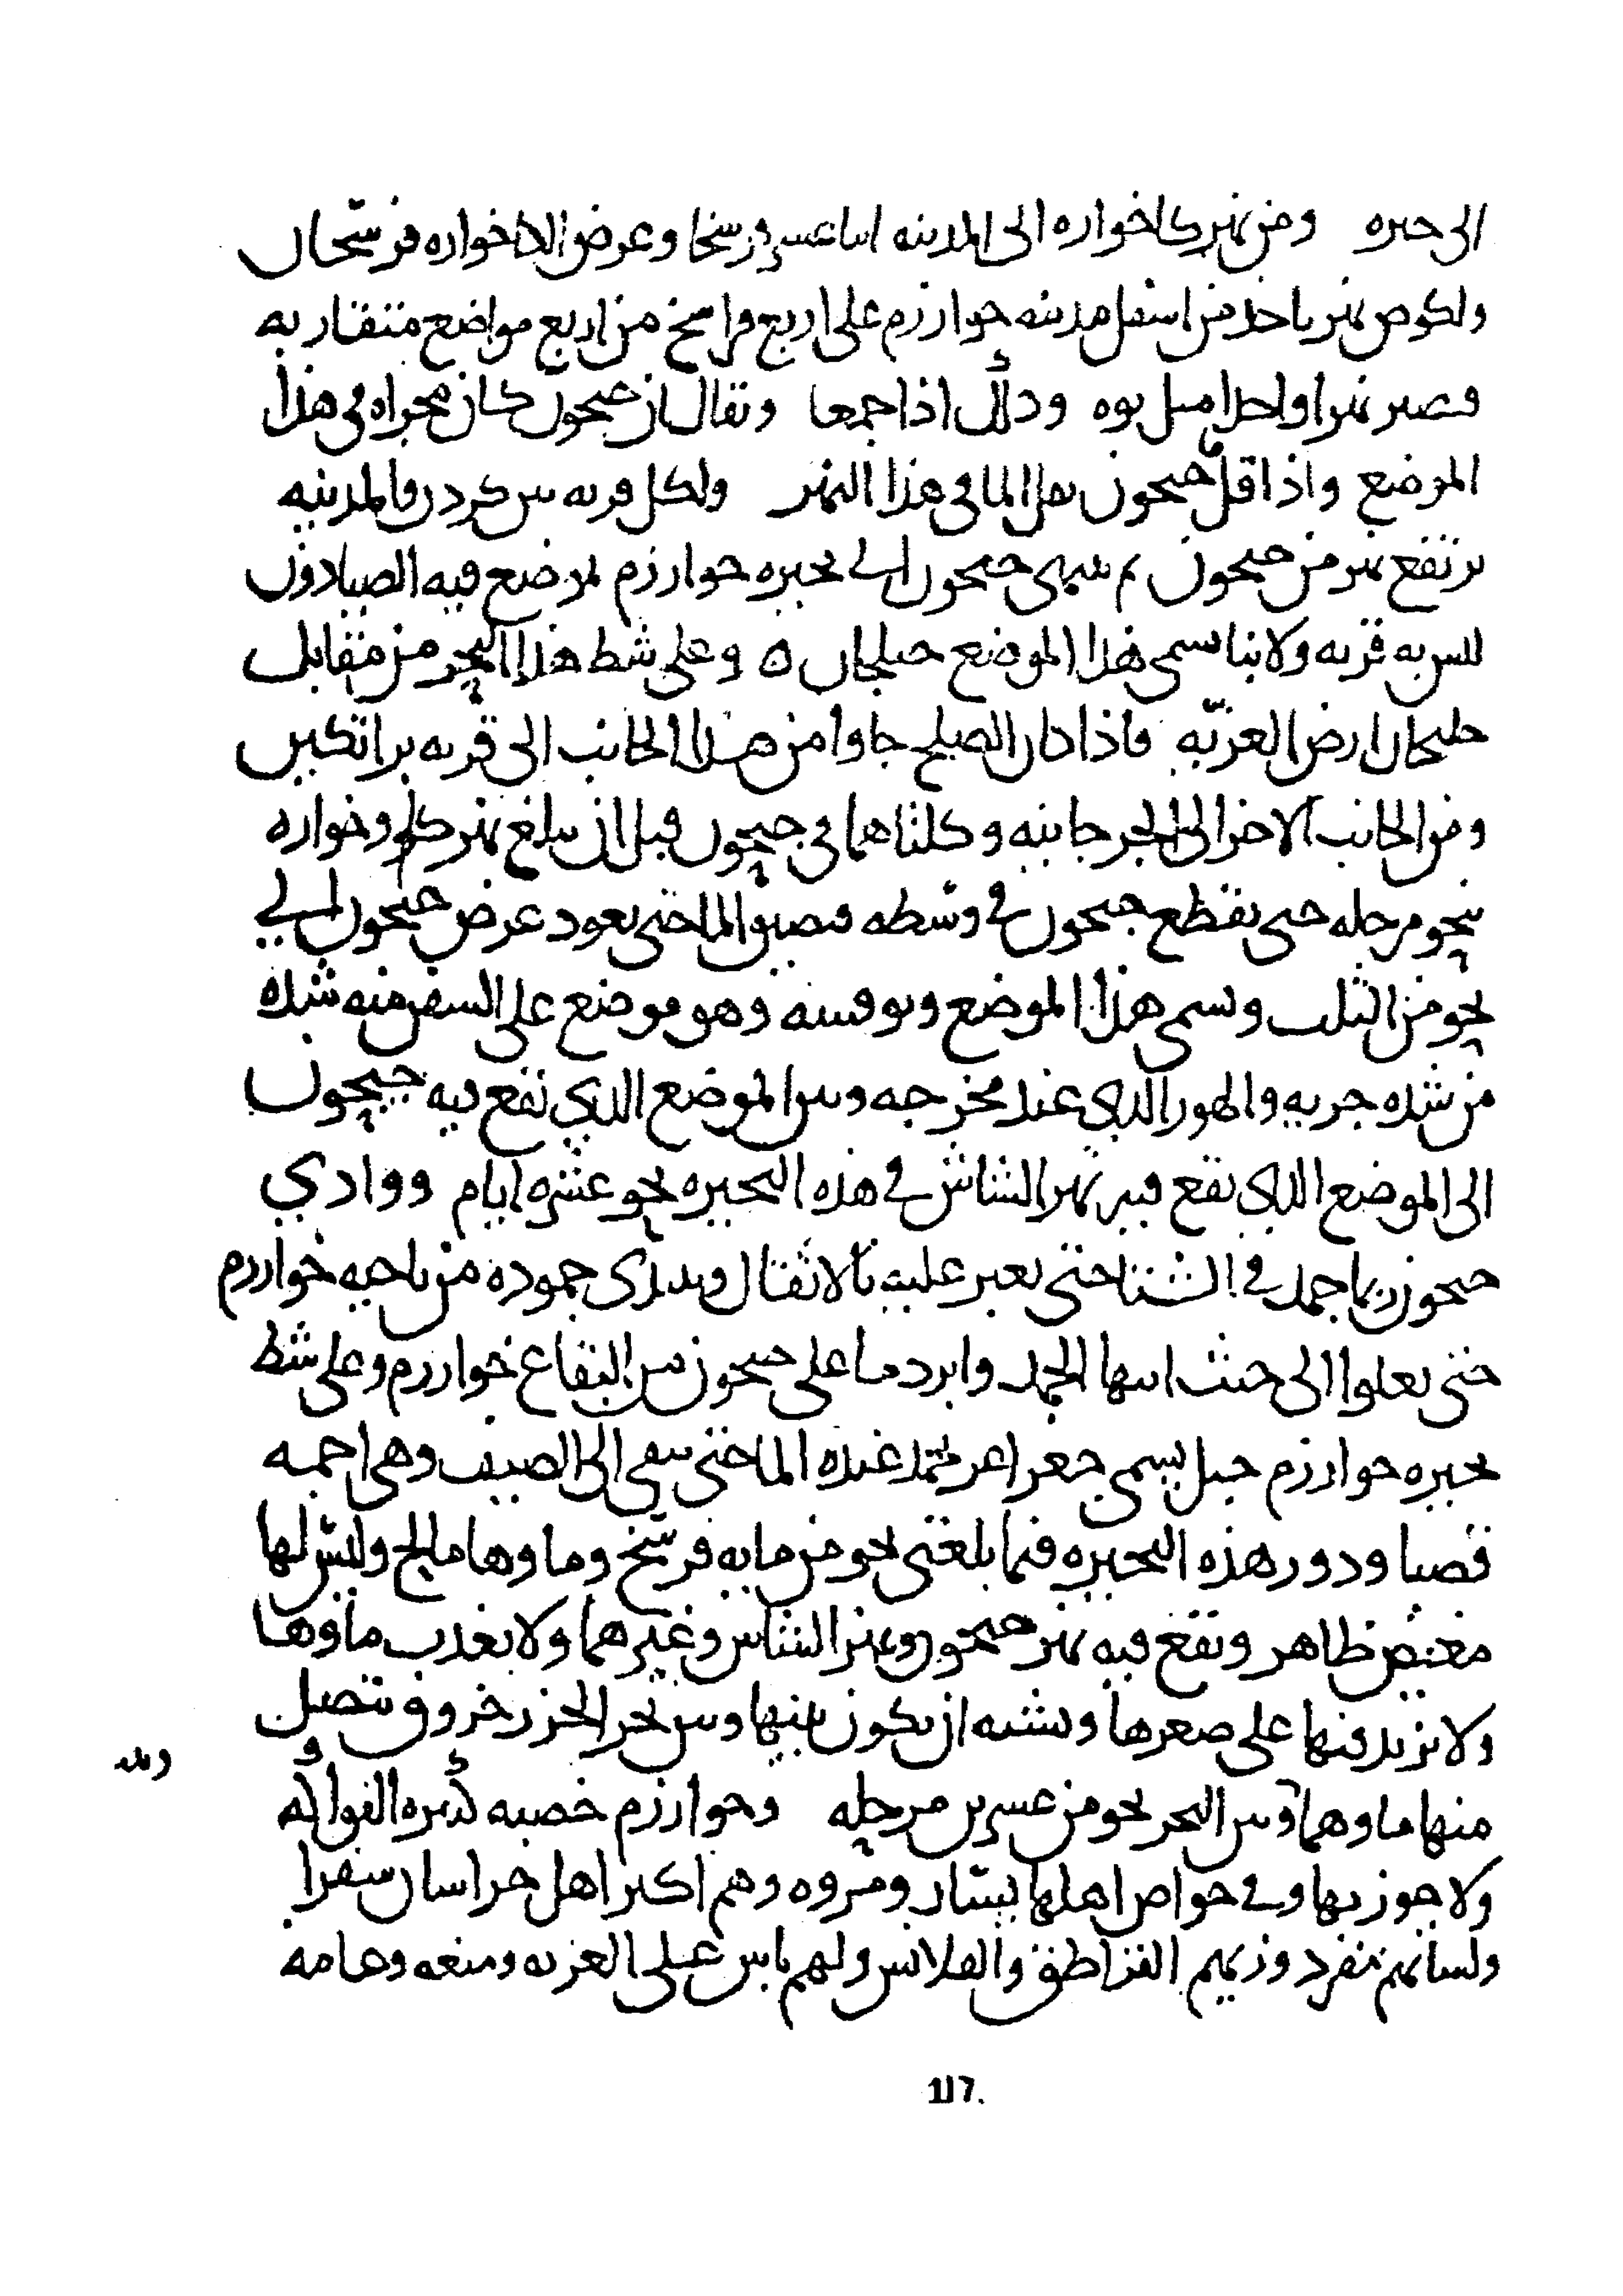 الى خيره ومن نهر كاخواره الى المدينه اثنا عشر فرسخا وعرض الكاخواره فرسخان
ولكوض نهر ياخذ من اسفل مدينه خوارزم على اربع فراسخ من اربع مواضع متقاربه
فصير نهرا واحدا مثل بوه وداك اذا جمعا ويقال ان جيحون كان مجراه في هذا
الموضع واذا قل ما جيحون قل الما في هذا النهر ولكل قريه بين كردر والمدينه
يرتفع نهر من جيحون ثم ينتهى جيحون الى بحيره خوارزم لموضع فيه الصيادون
ليس به قريه ولا بنا يسمى هذا الموضع خليجان ه وعلى شط هذا البحر من مقابل
خليجان ارض الغزيّه فاذا كان الصلح جاوا من هذا الجانب الى قريه براتكين
ومن الجانب الاخر الى الجرجانيه وكلتاهما في جيحون قبل ان يبلغ نهر كاوخواره
بنحو مرحله حتى يقطع جيحون في وسطه فيضيق الما حتى يعود عرض جيحون الى
نحو من الثلث ويسمى هذا الموضع وبوقسه وهو موضع على السفن منه شده
من شده جريه والهور الذي عند مخرجه وبين الموضع الذي يقع فيه جيحون
الى الموضع الذي يقع فيه نهر الشاش في هذه البحيره نحو عشره ايام ووادي
جيحون ربما جمد في الشتا حتى يعبر عليه بالاثقال ويبتدى جموده من ناحيه خوارزم
حتى يعلوا الى حيث انتها الجمد وابرد ما على جيحون من البقاع خوارزم وعلى شط
بحيره خوارزم جبل يسمى جغراغر يجمد عنده الما حتى يبقى الى الصيف وهي اجمه
قصبا ودور هذه البحيره فيما بلغنى نحو من مايه فرسخ وماوها مالح وليس لها
مغيض ظاهر ويقع فيه نهر جيحون ونهر الشاش وغيرهما ولا يعذب ماوها
ولا يزيد فيها على صغرها ويشبه ان يكون بينها وبين بحر الخزر خروق يتصل
منها ماوهما وبين البحر نحو من عشرين مرحله وخوارزم خصبه كثيره الفواكه
ولا جوز بها وفي خواص اهلها يسار ومروه وهم اكثر اهل خراسان سفرا
ولسانهم منفرد وزيهم القراطق والقلانس ولهم باس على الغزيه ومنعه وعامه
117